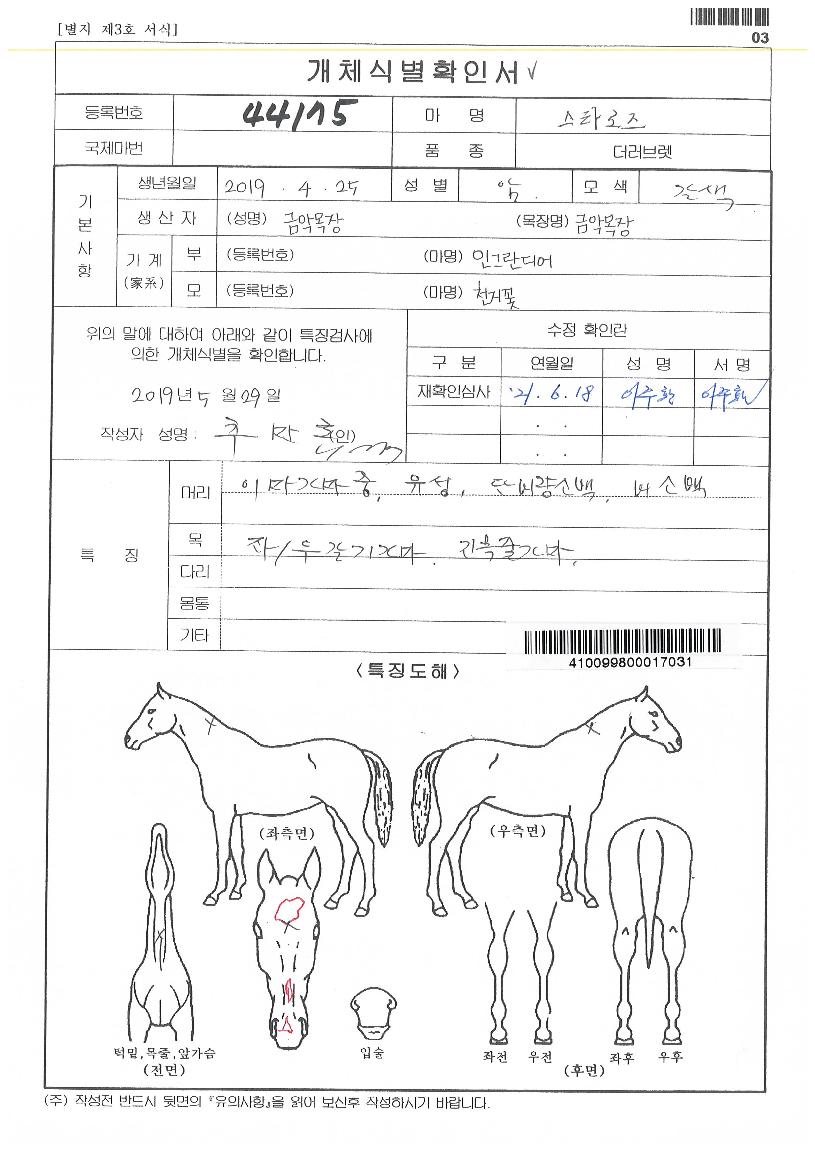 [별지 제3호 서식]
03
개체식별확인서 √
등록번호 44175 마 명 스타로즈
국제마번 품 종 더러브렛
기본사항
생년월일 2019 . 4 . 25 성 별 암 . 모 색 갈색
생 산 자 (성명) 금악목장 (목장명) 금악목장
기 계 (家系)
부 (등록번호) (마명) 인그란디어
모 (등록번호) (마명) 천지꽃
위의 말에 대하여 아래와 같이 특징검사에
의한 개체식별을 확인합니다.
2019년 5 월 29 일
작성자 성명 : (인)
수정 확인란
구 분 연월일 성 명 서 명
재확인심사 '21. 6. 18
. .
. .
특 징
머리 이마가마 중, 유성, 단비량소백, 비소백
목 좌/우 갈기가마. 기목줄가마.
다리
몸통
기타
410099800017031
<특징도해>
(좌측면) (우측면)
턱밑,목줄,앞가슴
(전면)
입술
좌전 우전 좌후 우후
(후면)
(주) 작성전 반드시 뒷면의 『유의사항』을 읽어 보신후 작성하시기 바랍니다.